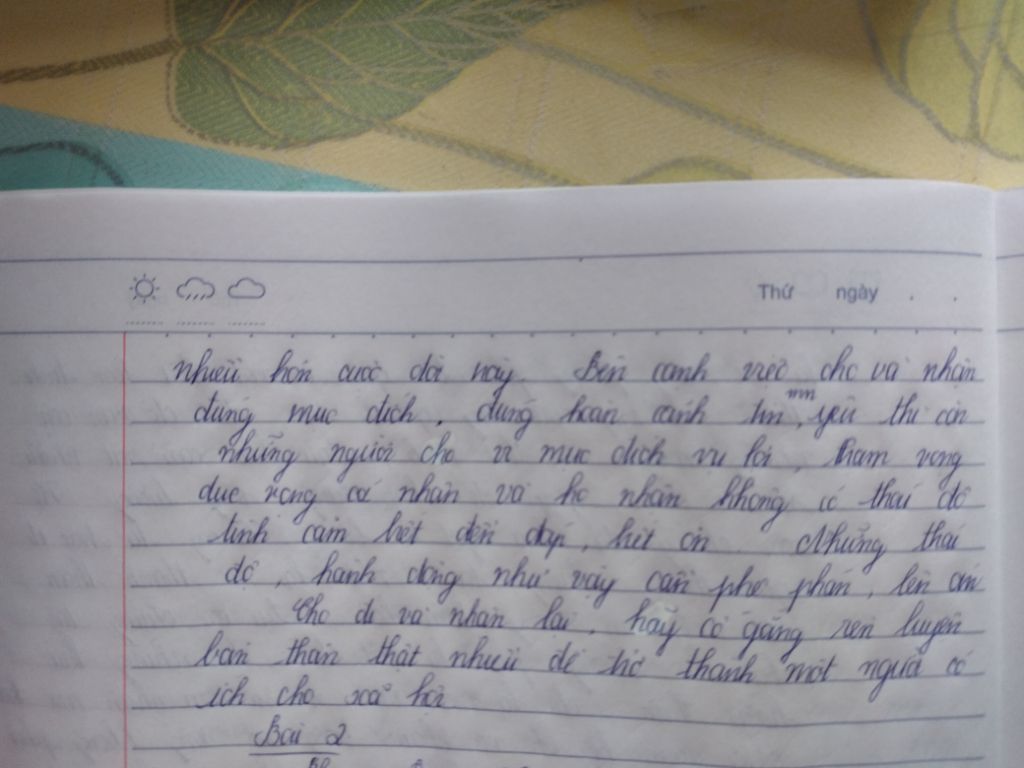 Thứ ngày . .
nhiều hơn cuộc đời này. Bên cạnh việc cho và nhận
đúng mục đích, đúng hoàn cảnh mn yêu thì còn
những người cho vì mục đích vụ lợi, tham vọng
dục vọng cá nhân và họ nhận không có thái độ
tình cảm biết đền đáp, biết ơn. Những thái
độ, hành động như vậy cần phê phán, lên án
Cho đi và nhận lại, hãy cố gắng rèn luyện
bản thân thật nhiều để trở thành một người có
ích cho xã hội
Bài 2